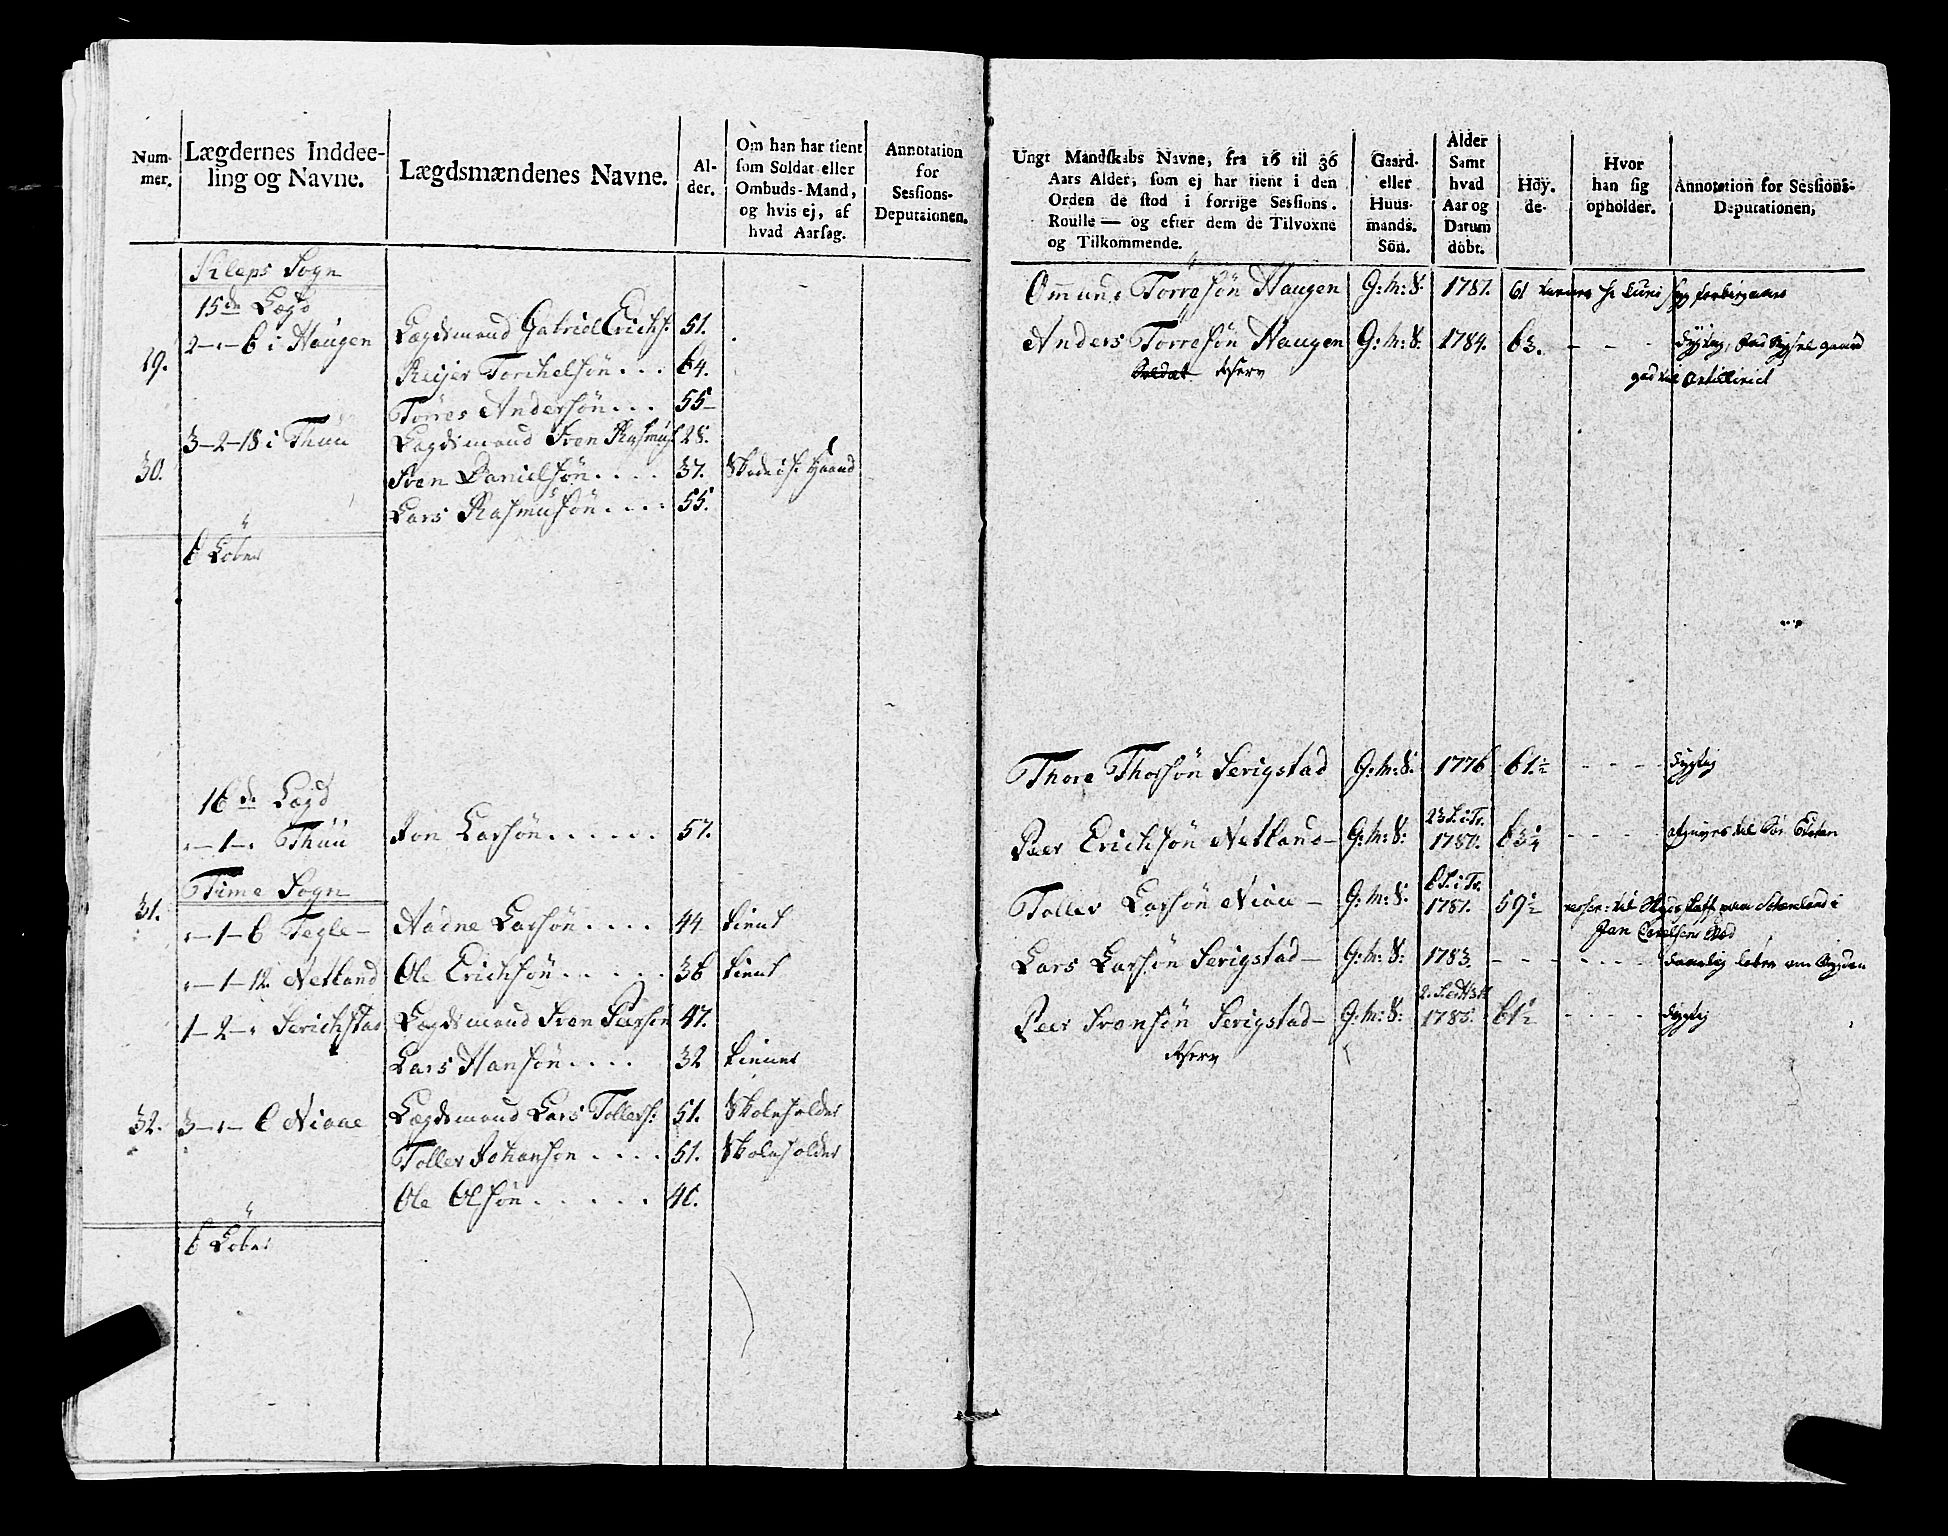 Num-
mer.
Lægdernes Inddee-
ling og Navne.
Lægdsmændenes Navne.
Al-
der.
Om han har tient
som Soldat eller
Ombuds-Mand,
og hvis ej, af
hvad Aarsag.
Annotation
for
Sessions-
Deputaionen.
Kleps Sogn
15de Lægd
2-"-6 i Haugen Lægdsmand Gabriel Erichs: 51.
29.
Reijer Torchelsön... 64.
Torres Andersön... 55
3-2-18 i Thuu Lægdsmand Sven Rasmus 28.
30.
Sven Danielsön.... 37.
Lars Rasmusön.... 55.
6 Lober
16de Lægd
"-1-" Thuu Jon Larsön...... 57.
Time Sogn
31.
"-1-6 Tegle- Aadne Larsön.... 44 tient
"-1-12 Netland Ole Erichsön..... 36 tient
1-2-" Serichstad Lægdsmand Sven Peersön 47.
Lars Hansön.... 32 tienner
32. 3-"-6 Niaae Lægdsmand Lars Tollevs: 51. Skoleholder
Tollev Johansön.... 51. Skoleholder
Ole Olsön...... 46.
6 Lober
Ungt Mandskabs Navne, fra 16 til 36
Aars Alder, som ej har tient i den
Orden de stod i forrige Sessions-
Roulle — og efter dem de Tilvoxne
og Tilkommende.
Gaard-
eller
Huus-
mands-
Sön.
Alder
Samt
hvad
Aar og
Datum
döbt.
Höy-
de-
Hvor
han sig
opholder.
Annotation for Sessions-
Deputationen,
Ommund Torresön Haugen G:M:S: 1781. 61
Anders Torresön Haugen G:M:S: 1784. 63. - - - dygtig,
Soldat Reserv
Thore Thorsön Serigstad G:M:S: 1776 61½ - - - dygtig
23 S. i Tr.
Peer Erichsön Netland- G:M:S: 1780. 63¼ - - -
6 S. i Tr.
Tollev Larsön Niaae- G:M:S: 1781. 59½
Lars Larsön Serigstad- G:M:S: 1783. - - -
Peer Svensön Serigstad- G:M:S: 1785. 61½ - - - dygtig
Reserv